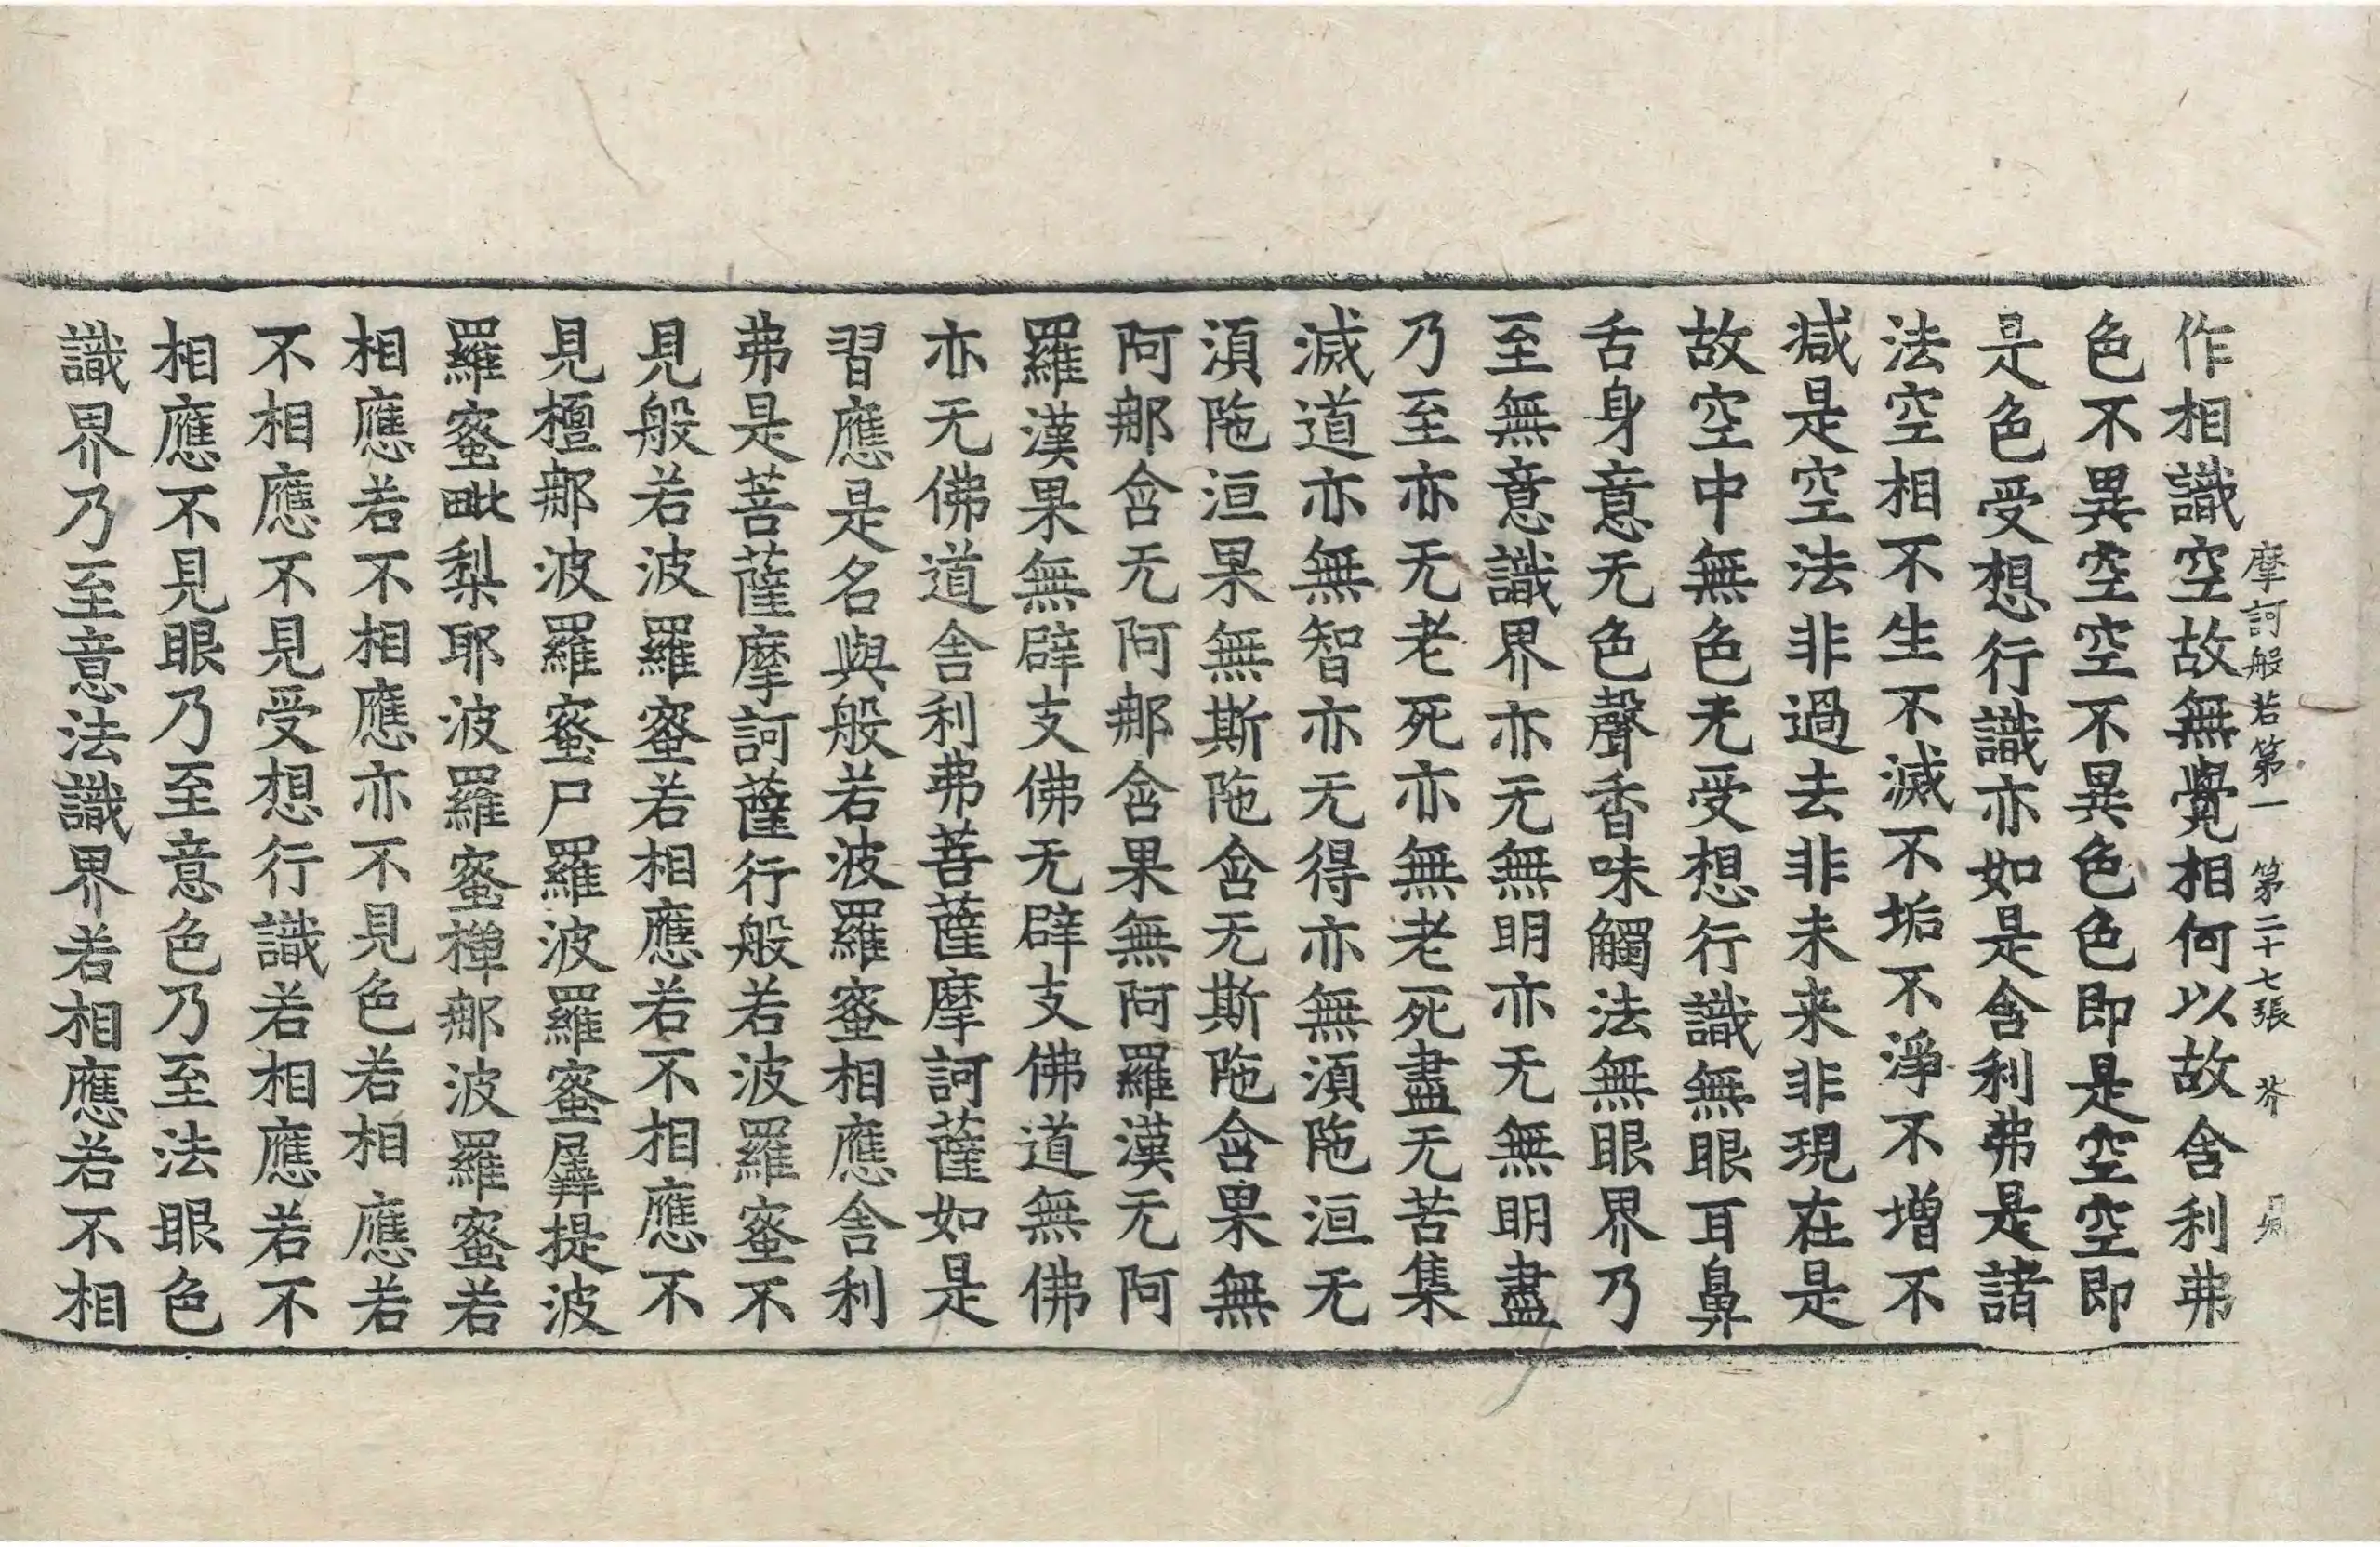 摩訶般若第一 第二十七張 芥
作相識空故無覺相何以故舎利弗
色不異空空不異色色即是空空即
是色受想行識亦如是舎利弗是諸
法空相不生不滅不垢不淨不增不
減是空法非過去非未来非現在是
故空中無色无受想行識無眼耳鼻
舌身意无色聲香味觸法無眼界乃
至無意識界亦无無明亦无無明盡
乃至亦无老死亦無老死盡无苦集
滅道亦無智亦无得亦無湏陁洹无
湏陁洹果無斯陁含无斯陁含果無
阿那含无阿那含果無阿羅漢无阿
羅漢果無辟支佛无辟支佛道無佛
亦无佛道舎利弗菩薩摩訶薩如是
習應是名與般若波羅蜜相應舎利
弗是菩薩摩訶薩行般若波羅蜜不
見般若波羅蜜若相應若不相應不
見檀那波羅蜜尸羅波羅蜜羼提波
羅蜜毗梨耶波羅蜜禅那波羅蜜若
相應若不相應亦不見色若相應若
不相應不見受想行識若相應若不
相應不見眼乃至意色乃至法眼色
識界乃至意法識界若相應若不相